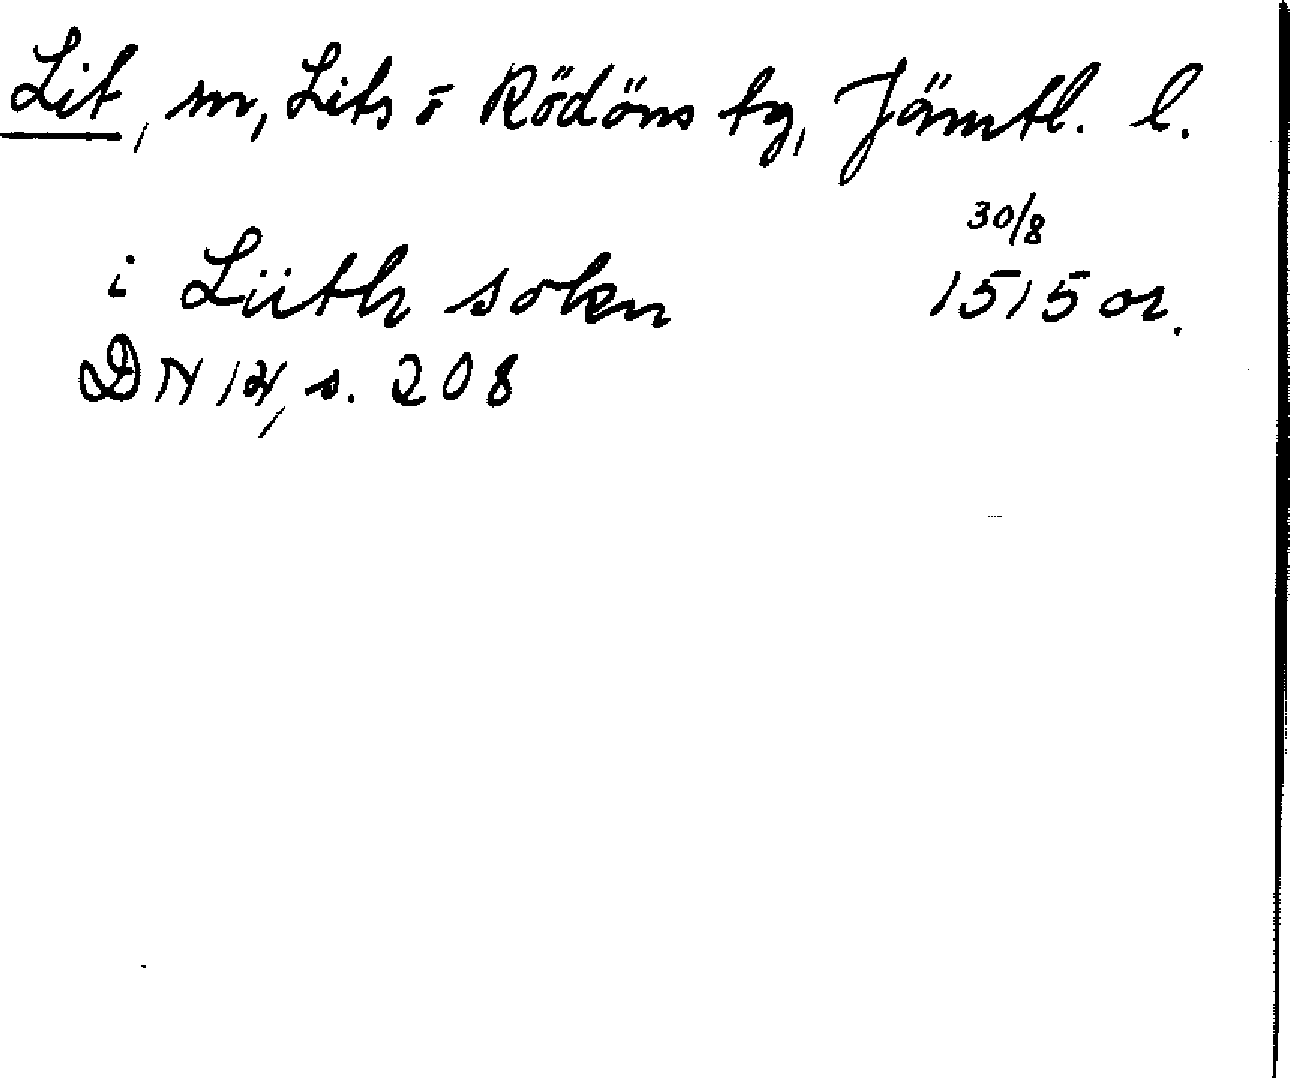 Lit, sn, Lits o Rödöns tg, Jämtl. l.
30/8
i Liith sokn 1515 or.
DN 14, s. 208